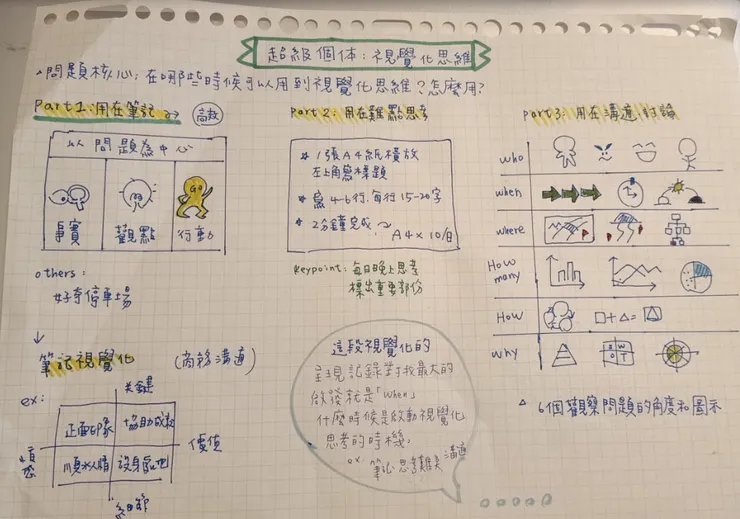 超級個体:視覺化思維
△問題核心:在哪些時候可以用到視覺化思維?怎麼用?
Part1:用在筆記
高效
以問題為中心
事實
觀點
GO
行動
others:
好奇停車場
↓
筆記視覺化
(商務溝通)
ex:
关鍵
正面印象
協助成交
價值
情感
順水人情
設身處地
細節
Part2:用在難點思考
1張A4紙橫放
左上角寫標題
寫4-6行.每行15-20字
2分鐘完成
A4×10/日
Keypoint:每日晚上思考
標出重要部份
這段視覺化的
呈現記錄對我最大的
啟發就是「when」
什麼時候是啟動視覺化
思考的時機,
ex 筆記 思考難点 溝通
Part3:用在溝通.討論
who
when
where
How many
How
□+△=
why
S W
O T
△ 6個觀察問題的角度和圖示